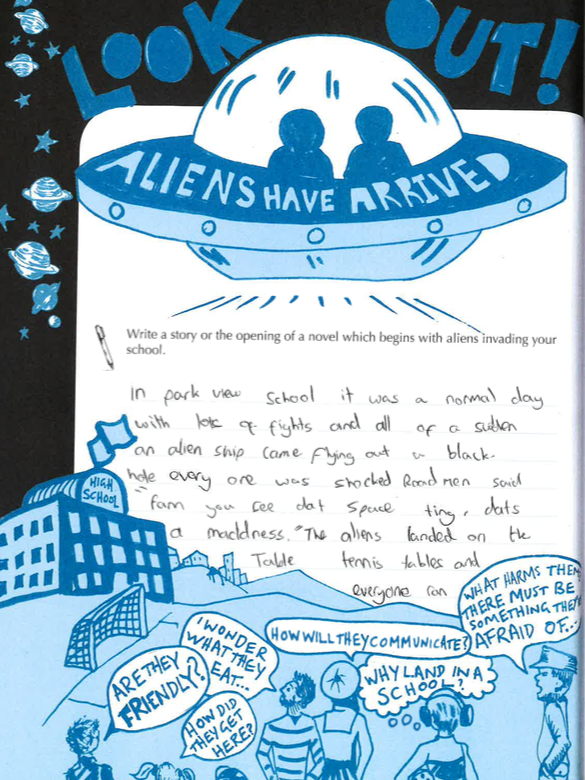 LOOK OUT!
ALIENS HAVE ARRIVED
Write a story or the opening of a novel which begins with aliens invading your
school.
In park view school it was a normal day
with lots of fights and all of a sudden
an alien ship came flying out a black
hole every one was shocked Road men said
"fam you see dat space ting, dats
a maddness." The aliens landed on the
Table tennis tables and
everyone ran
HIGH
SCHOOL
WHAT HARMS THEM
THERE MUST BE
SOMETHING THEY'RE
AFRAID OF...
I WONDER
WHAT THEY
EAT...
HOW WILL THEY COMMUNICATE?
ARE THEY
FRIENDLY?
WHY LAND IN A
SCHOOL?
HOW DID
THEY GET
HERE?